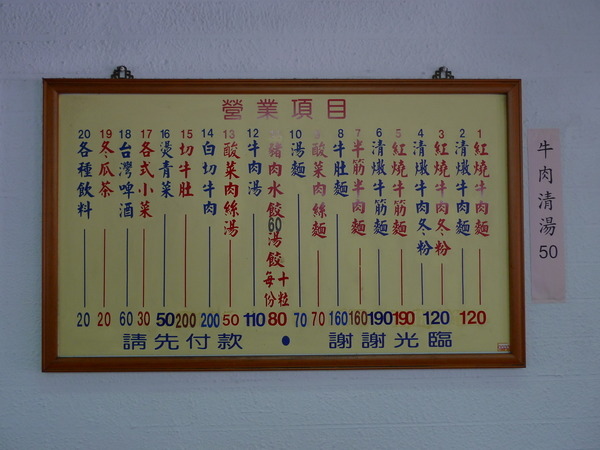 營業項目
1 紅燒牛肉麵
2 清燉牛肉麵 120
3 紅燒牛肉冬粉
4 清燉牛肉冬粉 120
5 紅燒牛筋麵 190
6 清燉牛筋麵 190
7 半筋半肉麵 160
8 牛肚麵 160
9 酸菜肉絲麵 70
10 湯麵 70
豬肉水餃 60 湯餃 每份十粒 80
12 牛肉湯 110
13 酸菜肉絲湯 50
14 白切牛肉 200
15 切牛肚 200
16 燙青菜 50
17 各式小菜 30
18 台灣啤酒 60
19 冬瓜茶 20
20 各種飲料 20
120
請先付款 • 謝謝光臨
牛肉清湯 50